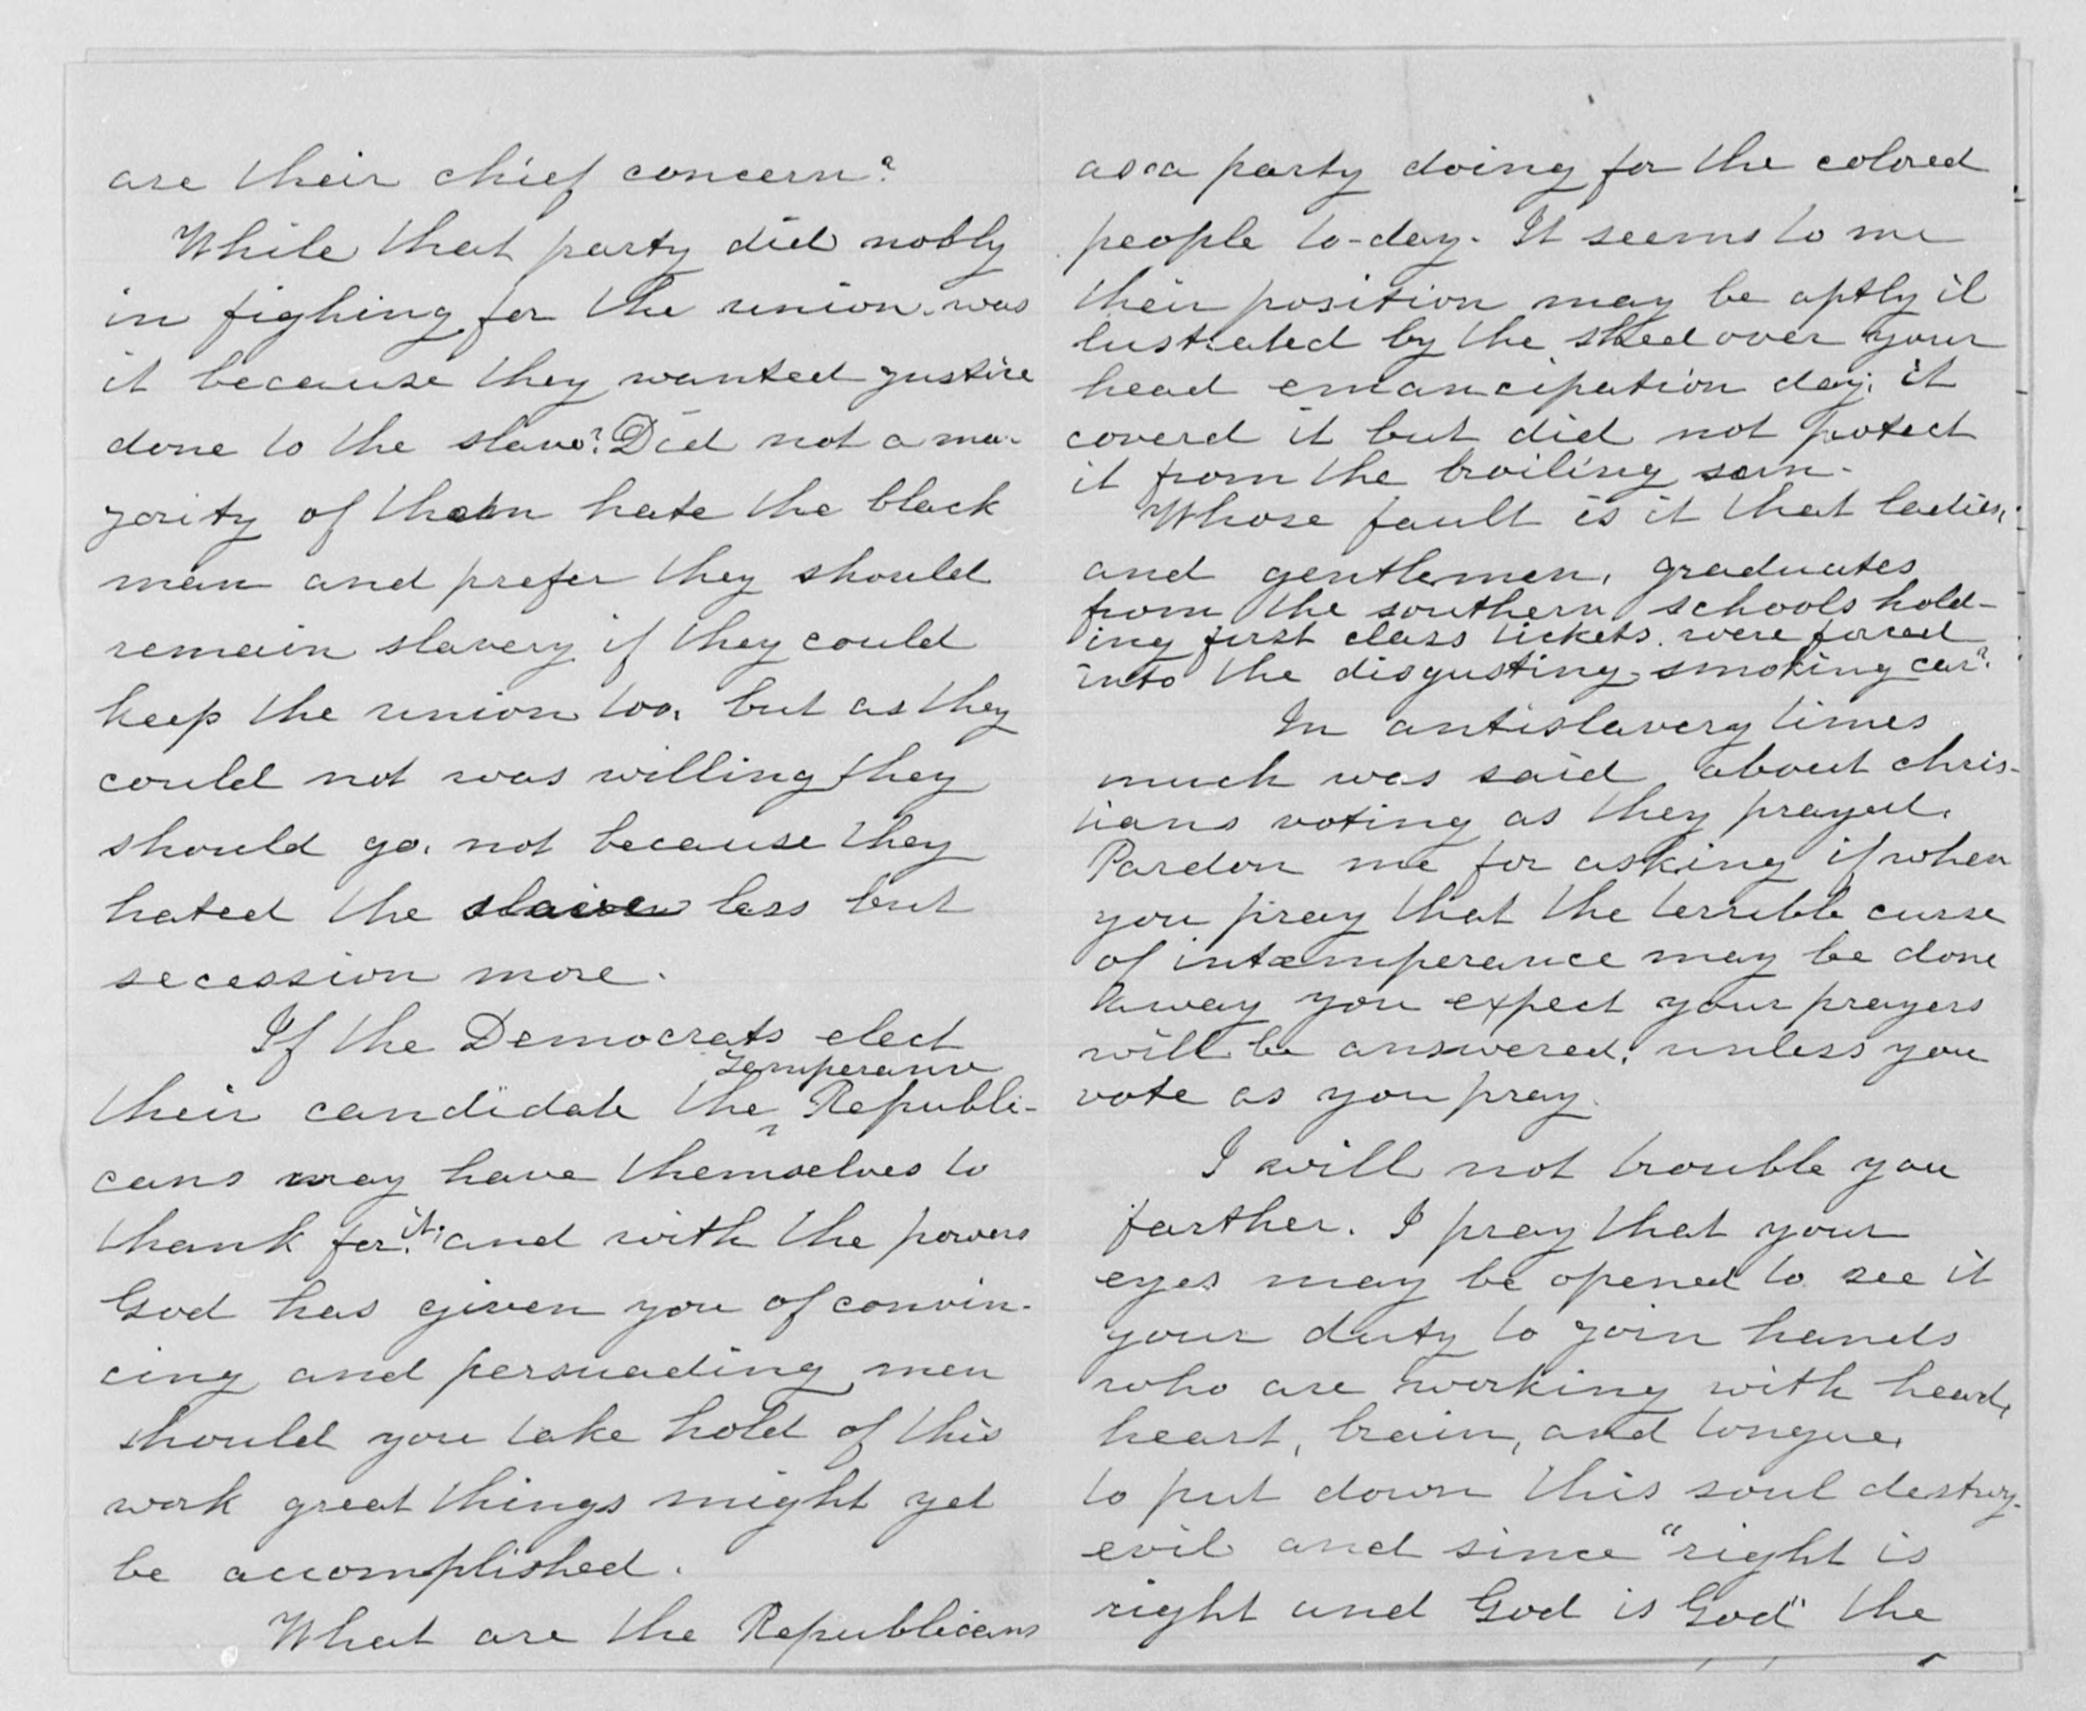 are their chief concern?
While that party did nobly
in fighing for the union. was
it because they wanted justice
done to the slave? Did not a ma-
jority of them hate the black
man and prefer they should
remain slavery if they could
keep the union too, but as they
could not was willing they
should go, not because they
hated the slave less but
secession more.
If the Democrats elect
Temperance
their candidate the Republi-
cans may have themselves to
thank for it; and with the powers
God has given you of convin-
cing and persuading men
should you take hold of this
work great things might yet
be accomplished.
What are the Republicans
as a party doing for the colored
people to-day. It seems to me
their position may be aptly il
lustrated by the shed over your
head emancipation day; it
coverd it but did not protect
it from the broiling sun.
Whose fault is it that ladies,
and gentlemen, graduates
from the southern schools hold-
ing first class tickets were forced
into the disgusting smoking car?
In antislavery times
much was said about chris-
tians voting as they prayed.
Pardon me for asking if when
you pray that the terrible curse
of intemperance may be done
away you expect your prayers
will be answered; unless you
vote as you pray.
I will not trouble you
farther. I pray that your
eyes may be opened to see it
your duty to join hands
who are working with head,
heart, brain, and tongue,
to put down this soul destroy-
evil and since "right is
right and God is God" the